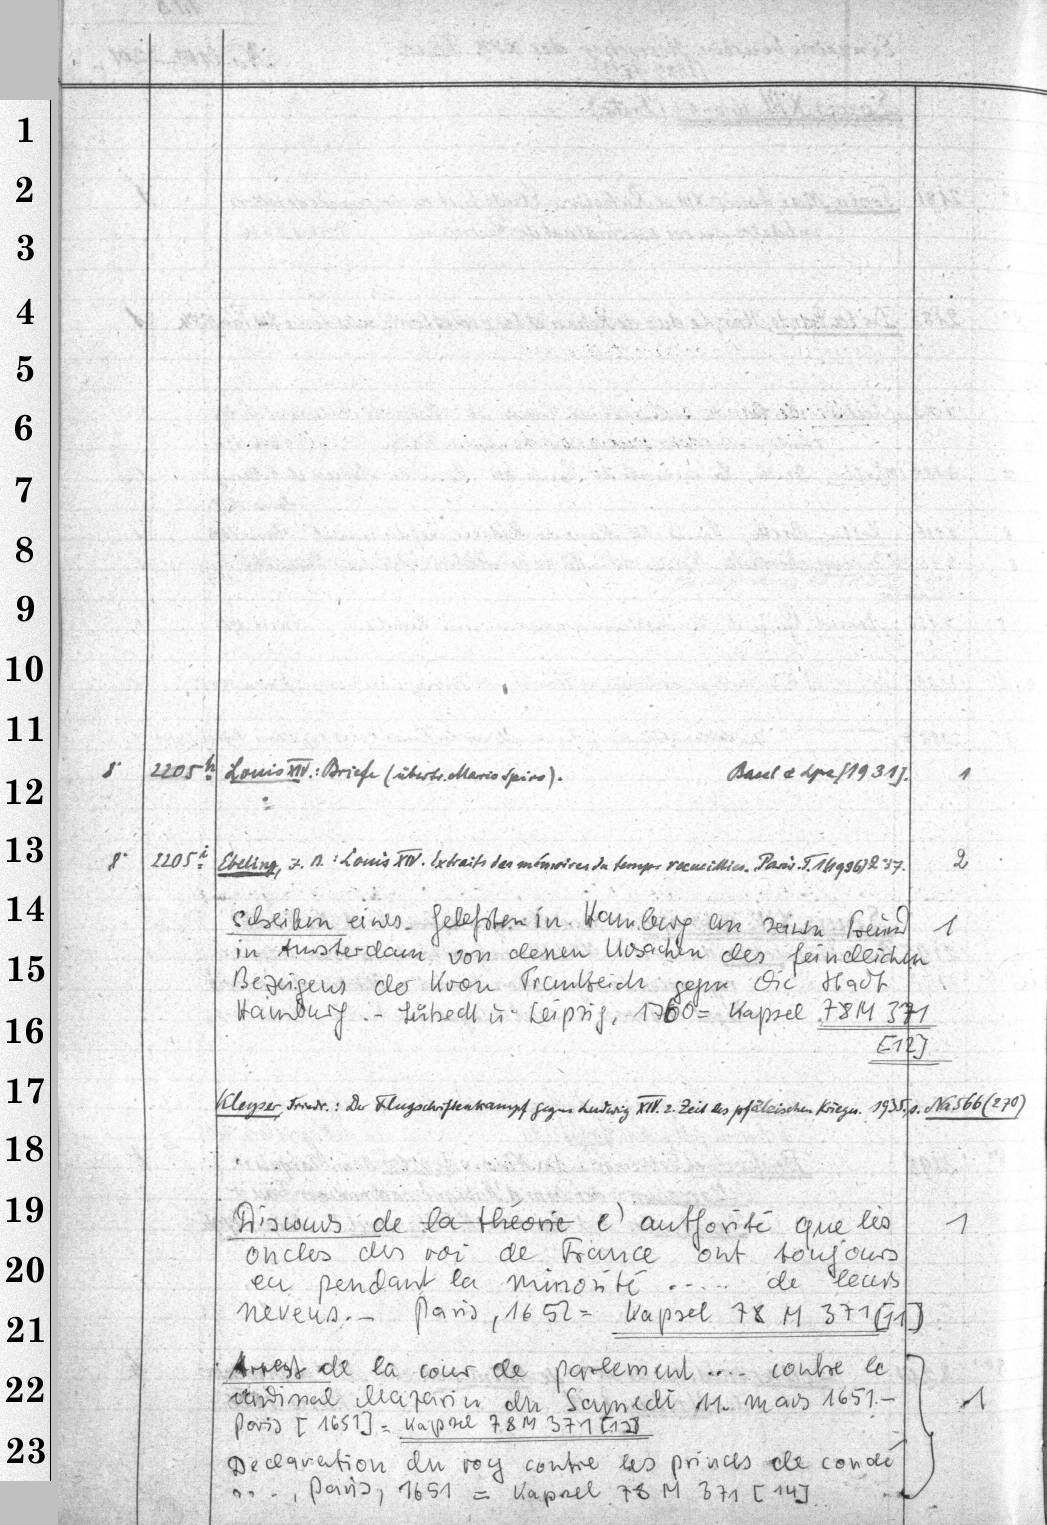 1
2
3
4
5
6
7
8
9
10
11
12
13
14
15
16
17
18
19
20
21
22
23
8° 2205h Louis XIV.: Briefe (übertr. Mario Spiro). Basel & Lpz [1931]. 1
8° 2205i Ebeling, F. A.: Louis XIV. Extraits des mémoires du temps recueillies. Paris. T. 1(1936) 2 37. 2
Schreiben eines Gelehrten in Hamburg an seinen Freund 1
in Amsterdam von denen Ursachen des feindlichen
Bezeigens der Kron Frankreich gegen die Stadt
Hamburg. - Lübeck u. Leipzig, 1760 = Kapsel 78 M 371
[12]
Kleyser, Friedr.: Der Flugschriftenkampf gegen Ludwig XIV. z. Zeit des pfälzischen Krieges. 1935, s. Na 566 (270)
Discours de la théorie l'authorité que les 1
oncles des roi de France ont toujours
eu pendant la minorité ..... de leurs
neveus. - Paris, 1652 = Kapsel 78 M 371 [11]
Arrest de la cour de parlement .... contre le
cardinal Mazarin du Samedi 11. mars 1651. - 1
Paris [1651] = Kapsel 78 M 371 [13]
Declaration du roy contre les princes de condé
...., Paris, 1651 = Kapsel 78 M 371 [14]